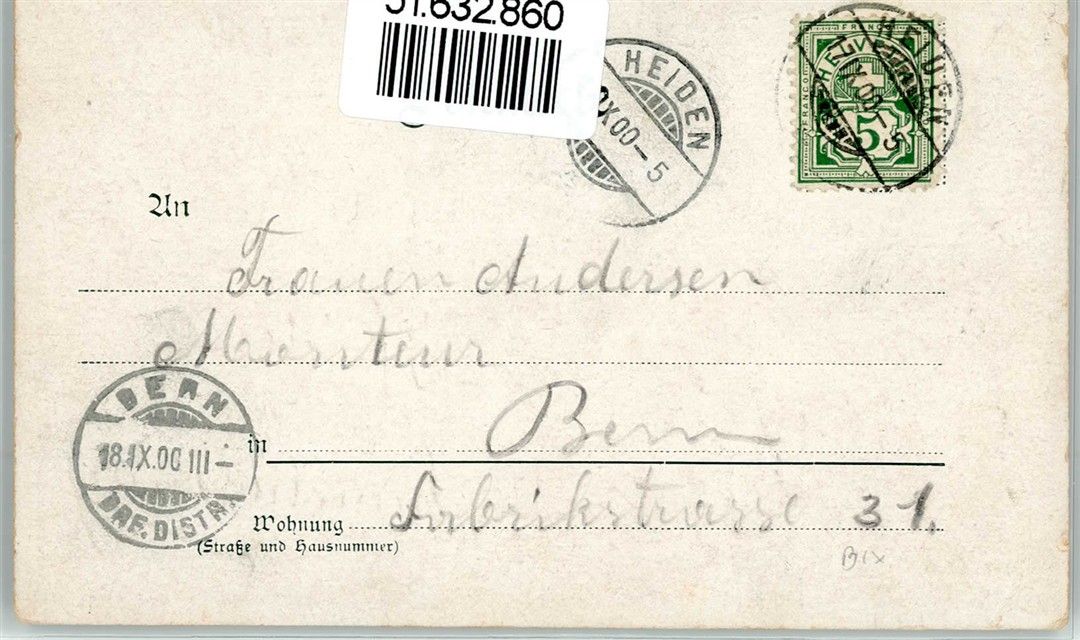 51.632.860
HEIDEN
IX00-5
FRANCO
HELVETIA
5
An
Frauen Andersen
Monteur
BERN
18.IX.00 III-
BRF. DISTR.
in Bern
Wohnung Fabrikstrasse 31.
(Straße und Hausnummer)